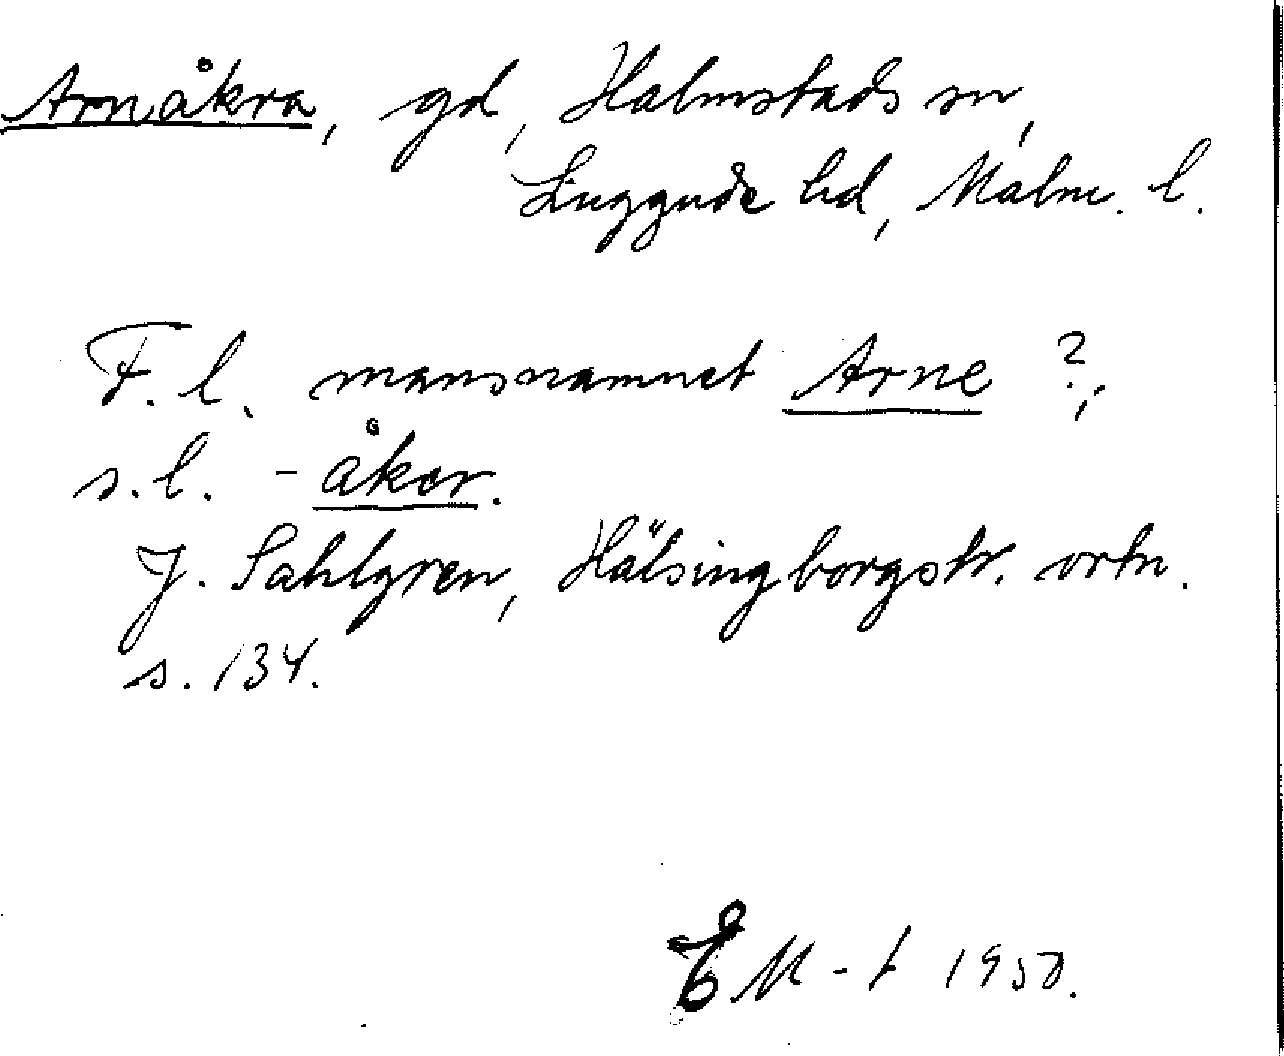 Arnåkra, gd, Halmstads sn,
Luggude hd, Malm. l.
F. l. mansnamnet Arne ?;
s. l. - åker.
J. Sahlgren, Hälsingborgstr. ortn.
s. 134.
E M-t 1950.